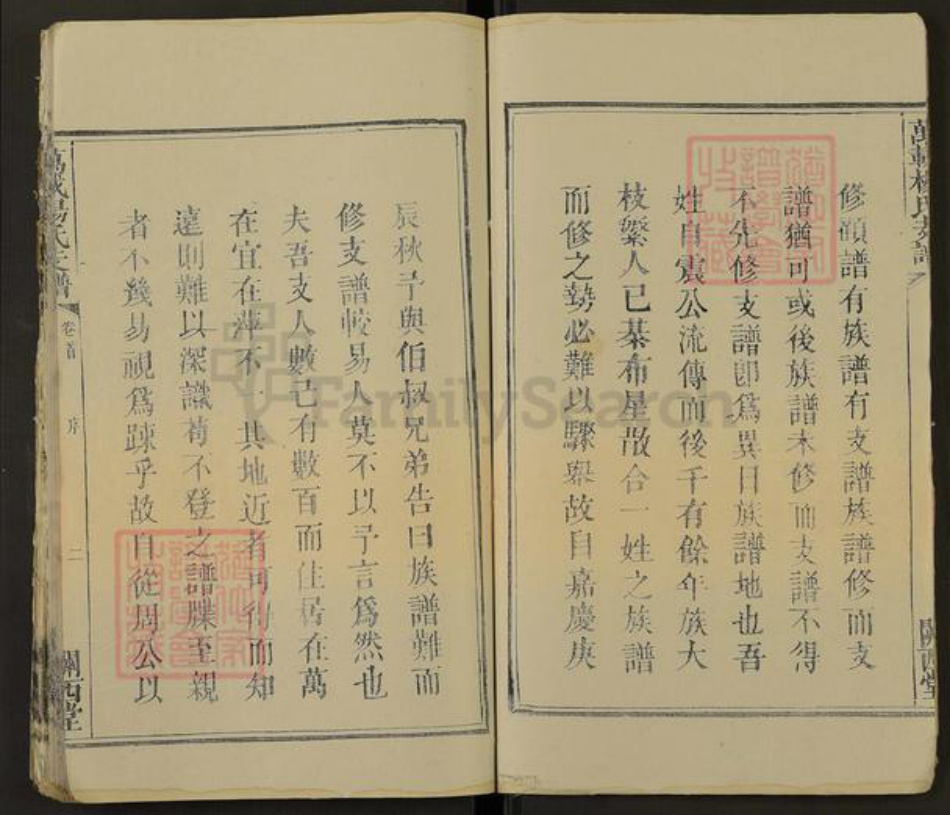 修顧譜有族譜有支譜族譜修而支
譜猶可或後族譜未修而支譜不得
不先修支譜即為異日族譜地也吾
姓自震公流傳而後千有餘年族大
枝繁人已棊布星散合一姓之族譜
而修之勢必難以驟舉故自嘉慶庚
辰秋予與伯叔兄弟告曰族譜難而
修支譜較易人莫不以予言為然也
夫吾支人數已有數百而住居在萬
在宜在萍不一其地近者可得而知
遠則難以深識苟不登之譜牒至親
者不幾易視為踈乎故自從周公以
萬載楊氏支譜
卷首
序
二
關西堂
萬載楊氏支譜
關西堂
FamilySearch